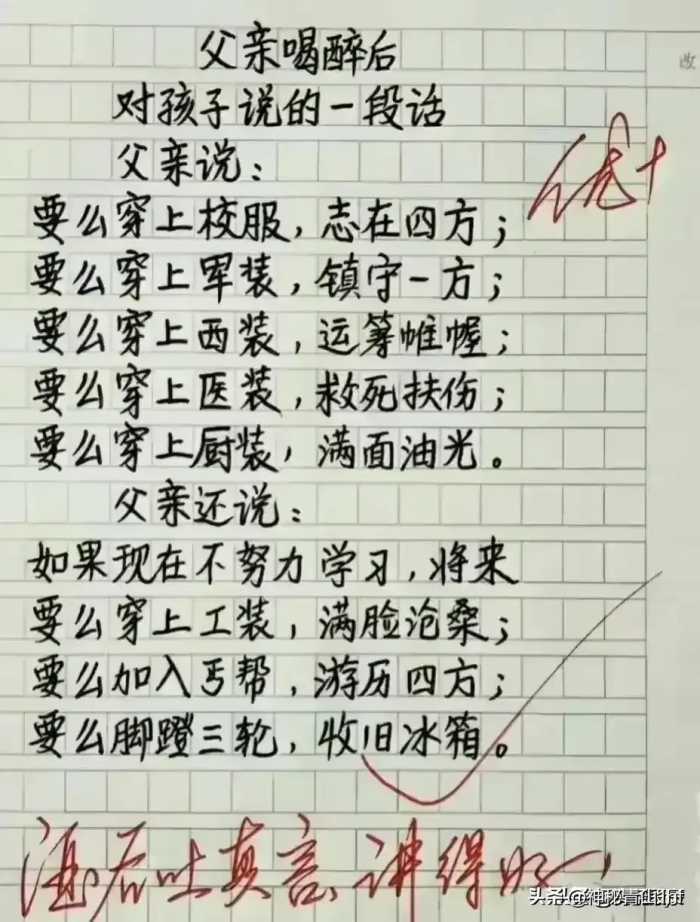 改
父亲喝醉后
对孩子说的一段话
优+
父亲说：
要么穿上校服，志在四方；
要么穿上军装，镇守一方；
要么穿上西装，运筹帷幄；
要么穿上医装，救死扶伤；
要么穿上厨装，满面油光。
父亲还说：
如果现在不努力学习，将来
要么穿上工装，满脸沧桑；
要么加入丐帮，游历四方；
要么脚蹬三轮，收旧冰箱。
酒后吐真言，讲得好！
头条